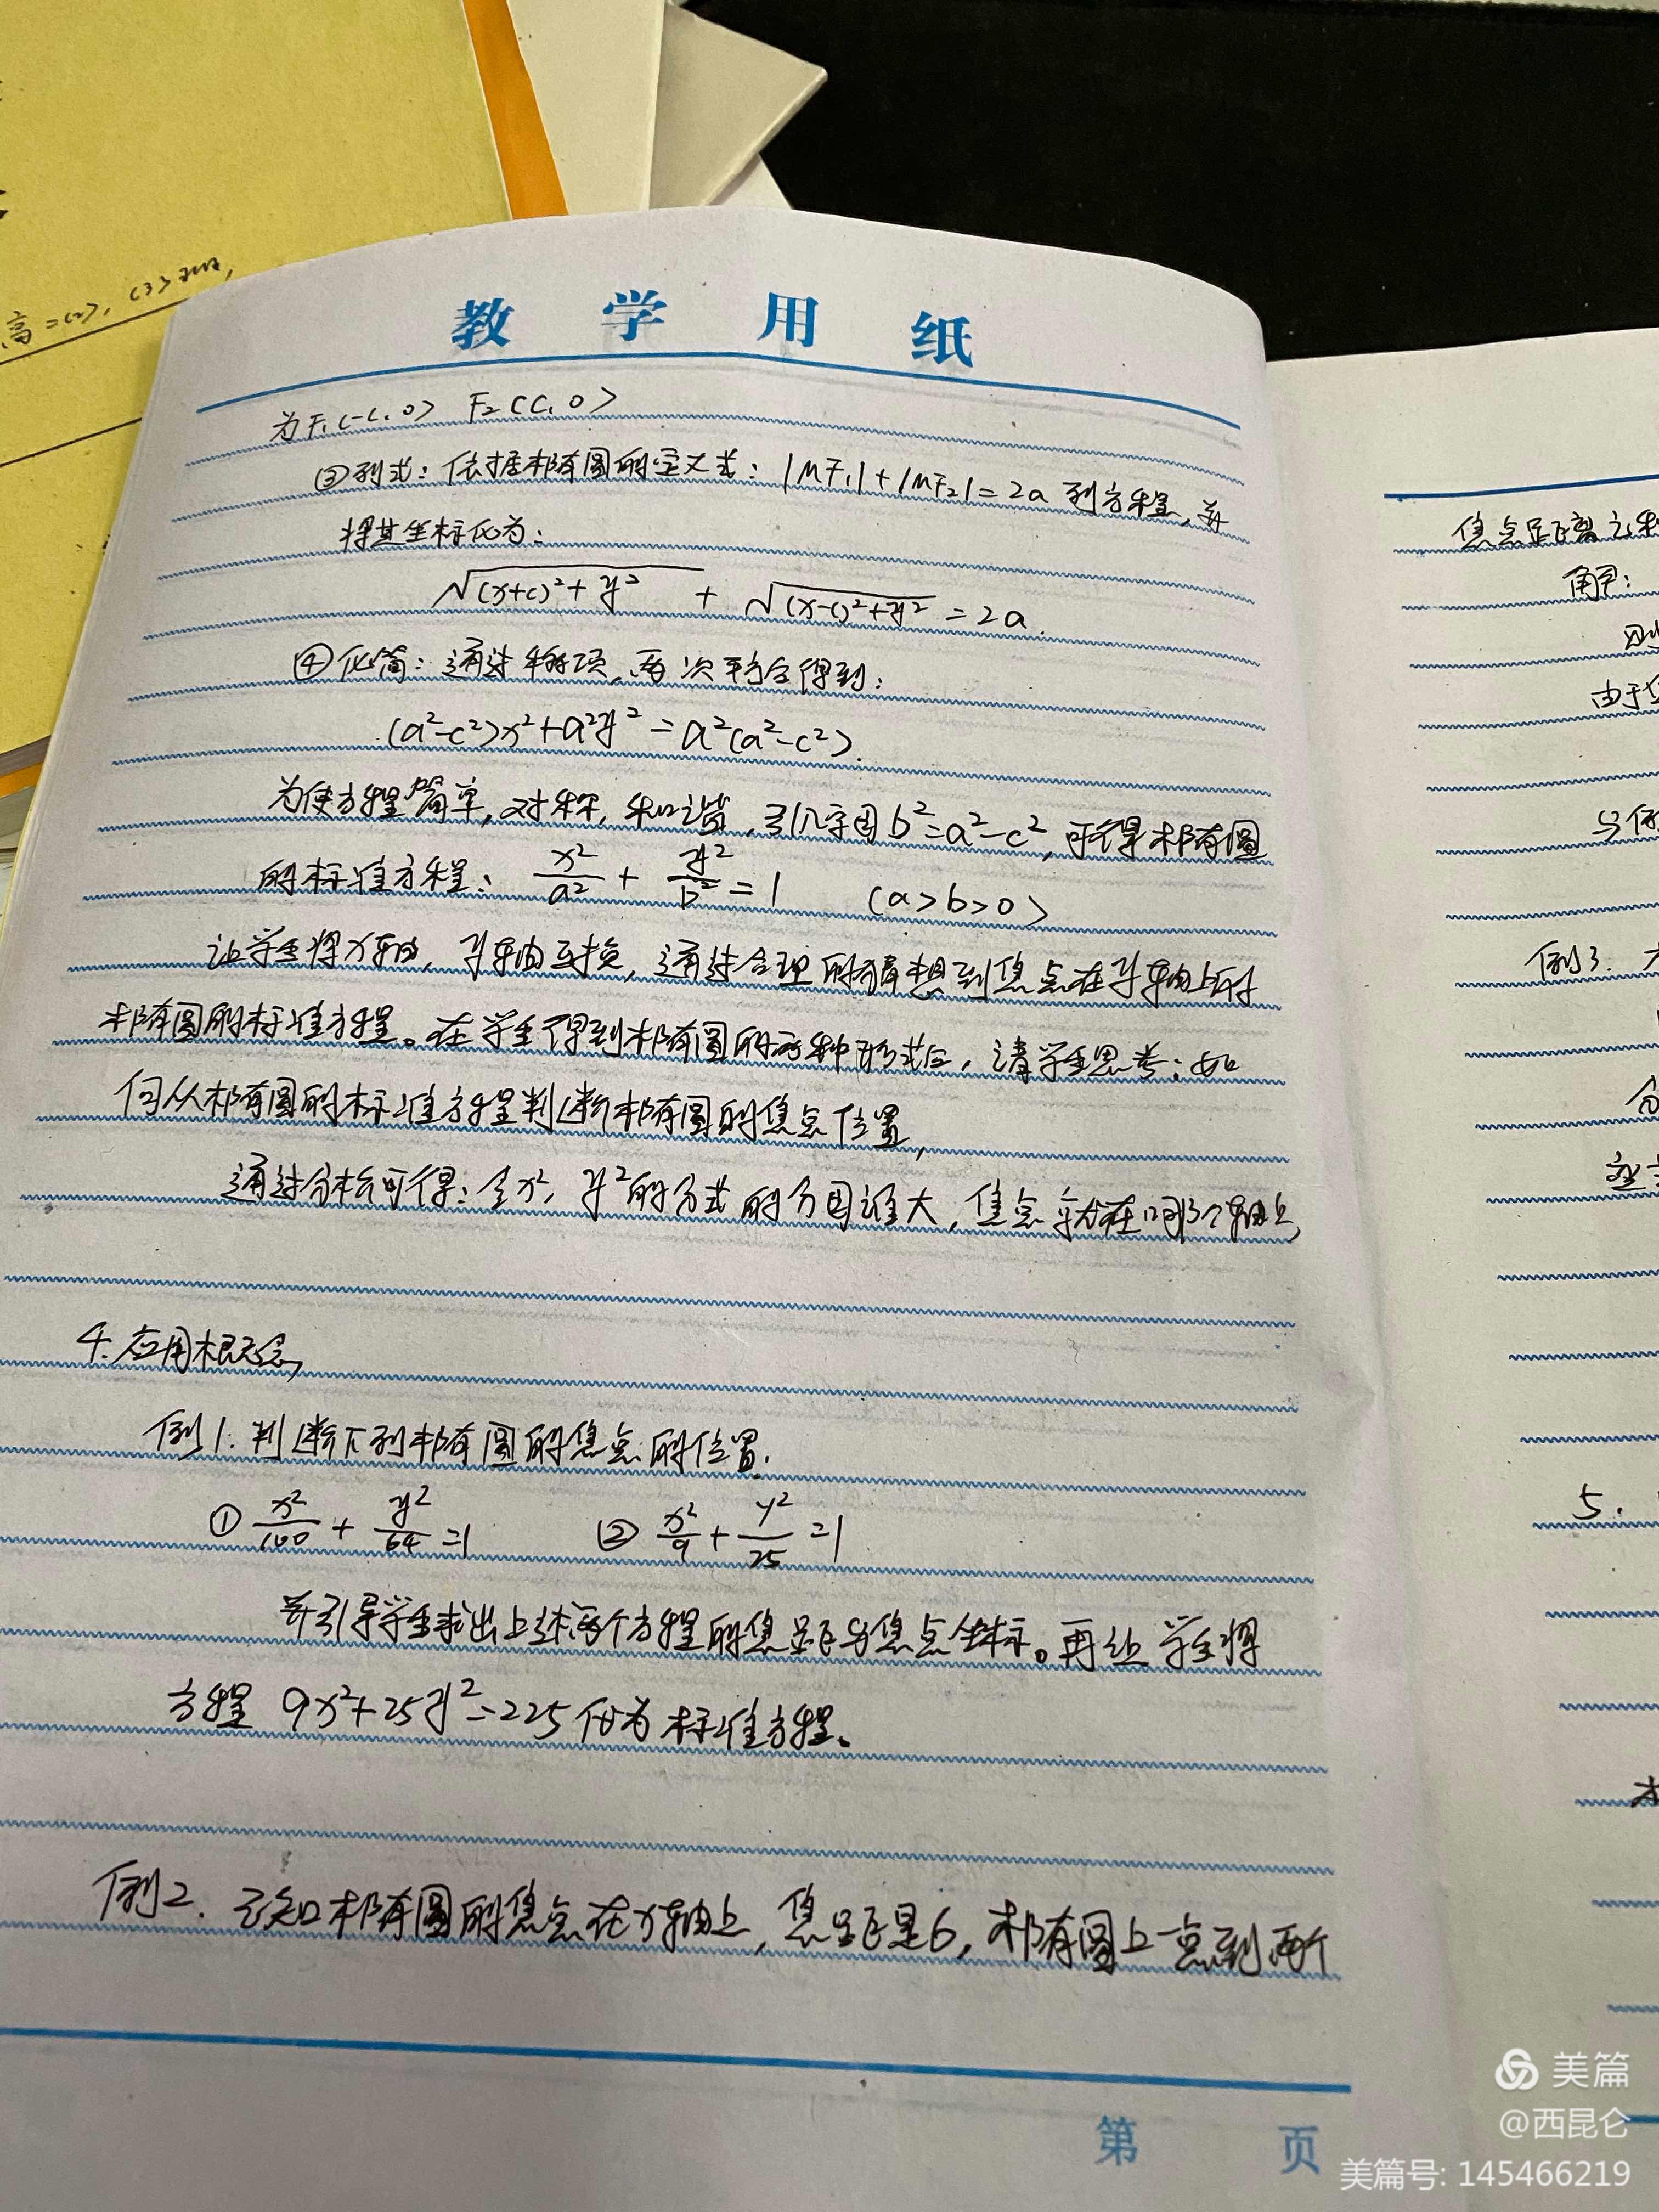 高=(2), (3)
教学用纸
为F₁(-c,0) F₂(c,0)
③列式：依据椭圆的定义式：|MF₁|+|MF₂|=2a列方程，并
将其坐标化为：
√((x+c)²+y²) + √((x-c)²+y²) =2a.
④化简：通过移项，两次平方后得到：
(a²-c²)x²+a²y²=a²(a²-c²).
为使方程简单，对称，和谐，引入字母b²=a²-c²，可得椭圆
的标准方程：x²/a² + y²/b² =1 (a>b>0)
让学生将x轴，y轴互换，通过合理的猜想到焦点在y轴上时
椭圆的标准方程。在学生得到椭圆的两种形式后，请学生思考：如
何从椭圆的标准方程判断椭圆的焦点位置，
通过分析可得：含x²，y²的分式的分母谁大，焦点就在哪个轴上
4.应用概念
例1.判断下列椭圆的焦点的位置.
① x²/100 + y²/64 =1 ② x²/9 + y²/25 =1
并引导学生求出上述两个方程的焦距与焦点坐标。再让学生将
方程 9x²+25y²=225化为标准方程。
例2.已知椭圆的焦点在x轴上，焦距是6，椭圆上一点到两个
第 页
焦点距离之和
解：
则
由于
与例
例3.
5.
美篇
@西昆仑
美篇号: 145466219